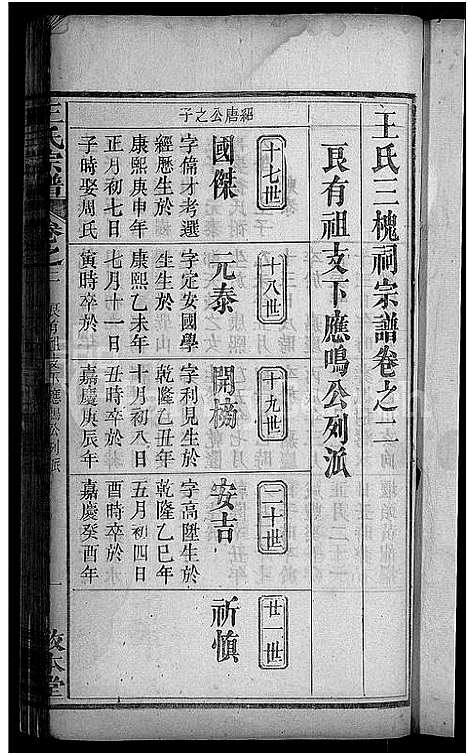 王氏三槐祠宗譜卷之二
艮有祖支下應鳴公列派
十七世
十八世
十九世
二十世
廿一世
紹唐公之子
國傑
字倫才考選
經歷生於
康熙庚申年
正月初七日
子時娶周氏
元泰
字定安國學
生生於
康熙乙未年
七月十一日
寅時卒於
開榜
字利見生於
乾隆乙丑年
十月初八日
丑時卒於
嘉慶庚辰年
安吉
字高陞生於
乾隆乙巳年
五月初四日
酉時卒於
嘉慶癸酉年
祈慎
王氏宗譜
卷之二
艮有祖支下應鳴公列派
一
敦本堂